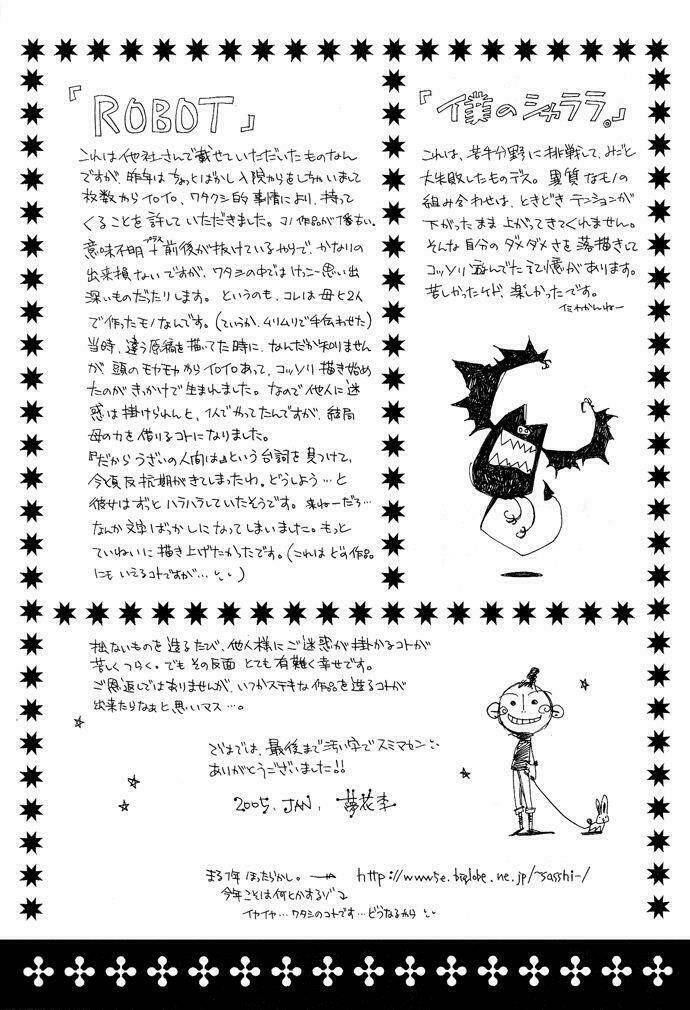 『ROBOT』
これは他社さんで載せていただいたものなん
ですが、昨年はちょっとばかし入院からをしちゃいまして
枚数からイロイロ、ワタクシ的事情により、持って
くることを許していただきました。コノ作品が1番古い。
意味不明プラス+前後が抜けているやつで、かなりの
出来損ないですが、ワタシの中ではけっこー思い出
深いものだったりします。というのも、コレは母と2人
で作ったモノなんです。(ていうか、ムリムリで手伝わせた)
当時、違う原稿を描いてた時に、なんだか知りません
が頭のモヤモヤからイロイロあって、コッソリ描き始め
たのがきっかけで生まれました。なので他人に迷
惑は掛けられんと、1人でやってたんですが、結局
母の力を借りるコトになりました。
『だからうざいの人間は』という台詞を見つけて、
今頃反抗期がきてしまったわ。どうしよう…と
彼女はずっとハラハラしていたそうです。来ねーだろ…
なんか文字ばっかしになってしまいました。もっと
ていねいに描き上げたかったです。(これはどの作品
にもいえるコトですが…
『僕のシャララ。』
これは、若干分野に挑戦して、みごと
大失敗したものデス。異質なモノの
組み合わせは、ときどきテンションが
下がったまま上がってきてくれません。
そんな自分のダメダメさを落描きして
コッソリ遊んでた記憶があります。
苦しかったケド、楽しかったです。
イミわかんねー
拙ないものを造るたび、他人様にご迷惑が掛かるコトが
苦しくつらく。でもその反面とても有難く幸せです。
ご恩返しではありませんが、いつかステキな作品を造るコトが
出来たらなぁと思いマス…。
ではでは、最後まで汚い字でスミマセン
ありがとうございました!!
2005. JAN. 夢花李
まる1年ほったらかし。→ http://www5e.biglobe.ne.jp/~sasshi-/
今年こそは何とかするゾ
イヤイヤ…ワタシのコトです…どうなるかな